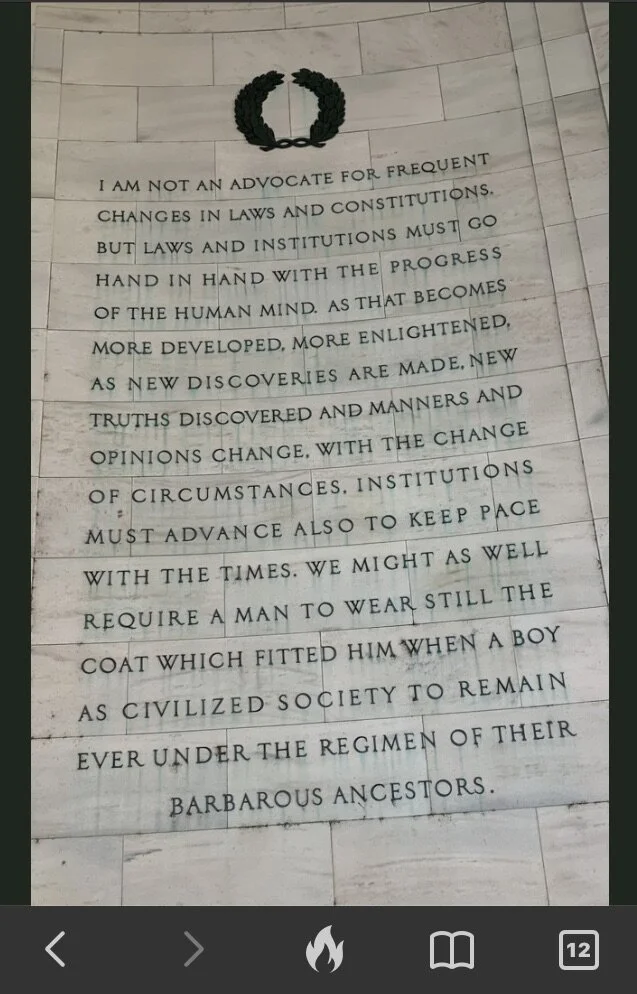 I AM NOT AN ADVOCATE FOR FREQUENT
CHANGES IN LAWS AND CONSTITUTIONS.
BUT LAWS AND INSTITUTIONS MUST GO
HAND IN HAND WITH THE PROGRESS
OF THE HUMAN MIND. AS THAT BECOMES
MORE DEVELOPED, MORE ENLIGHTENED,
AS NEW DISCOVERIES ARE MADE, NEW
TRUTHS DISCOVERED AND MANNERS AND
OPINIONS CHANGE, WITH THE CHANGE
OF CIRCUMSTANCES, INSTITUTIONS
MUST ADVANCE ALSO TO KEEP PACE
WITH THE TIMES. WE MIGHT AS WELL
REQUIRE A MAN TO WEAR STILL THE
COAT WHICH FITTED HIM WHEN A BOY
AS CIVILIZED SOCIETY TO REMAIN
EVER UNDER THE REGIMEN OF THEIR
BARBAROUS ANCESTORS.
12